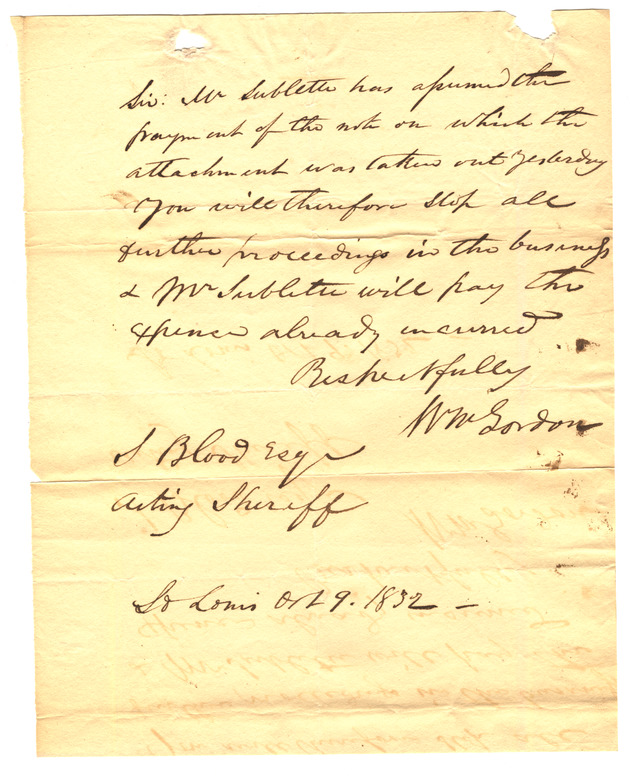 Sir: Mr Sublette has assumed the
payment of the note on which the
attachment was taken out yesterday
You will therefore stop all
further proceedings in the business
& Mr Sublette will pay the
expence already incurred
Respectfully
Wm Gordon
S Blood Esqr
Acting Sheriff
St Louis Oct 9. 1832 –